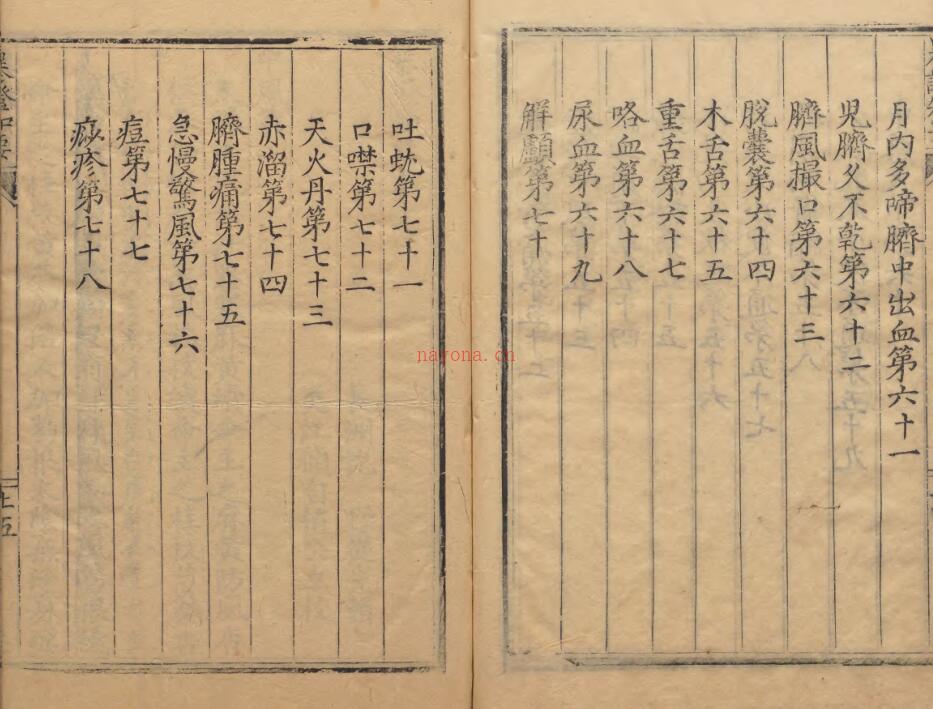 月内多啼臍中出血第六十一
児臍久不乾第六十二
臍風撮口第六十三
脫囊第六十四
木舌第六十五
重舌第六十七
咯血第六十八
尿血第六十九
解顱第七十
吐蚘第七十一
口噤第七十二
天火丹第七十三
赤溜第七十四
臍腫痛第七十五
急慢驚風第七十六
痘第七十七
痧疹第七十八
十五
nayona.cn